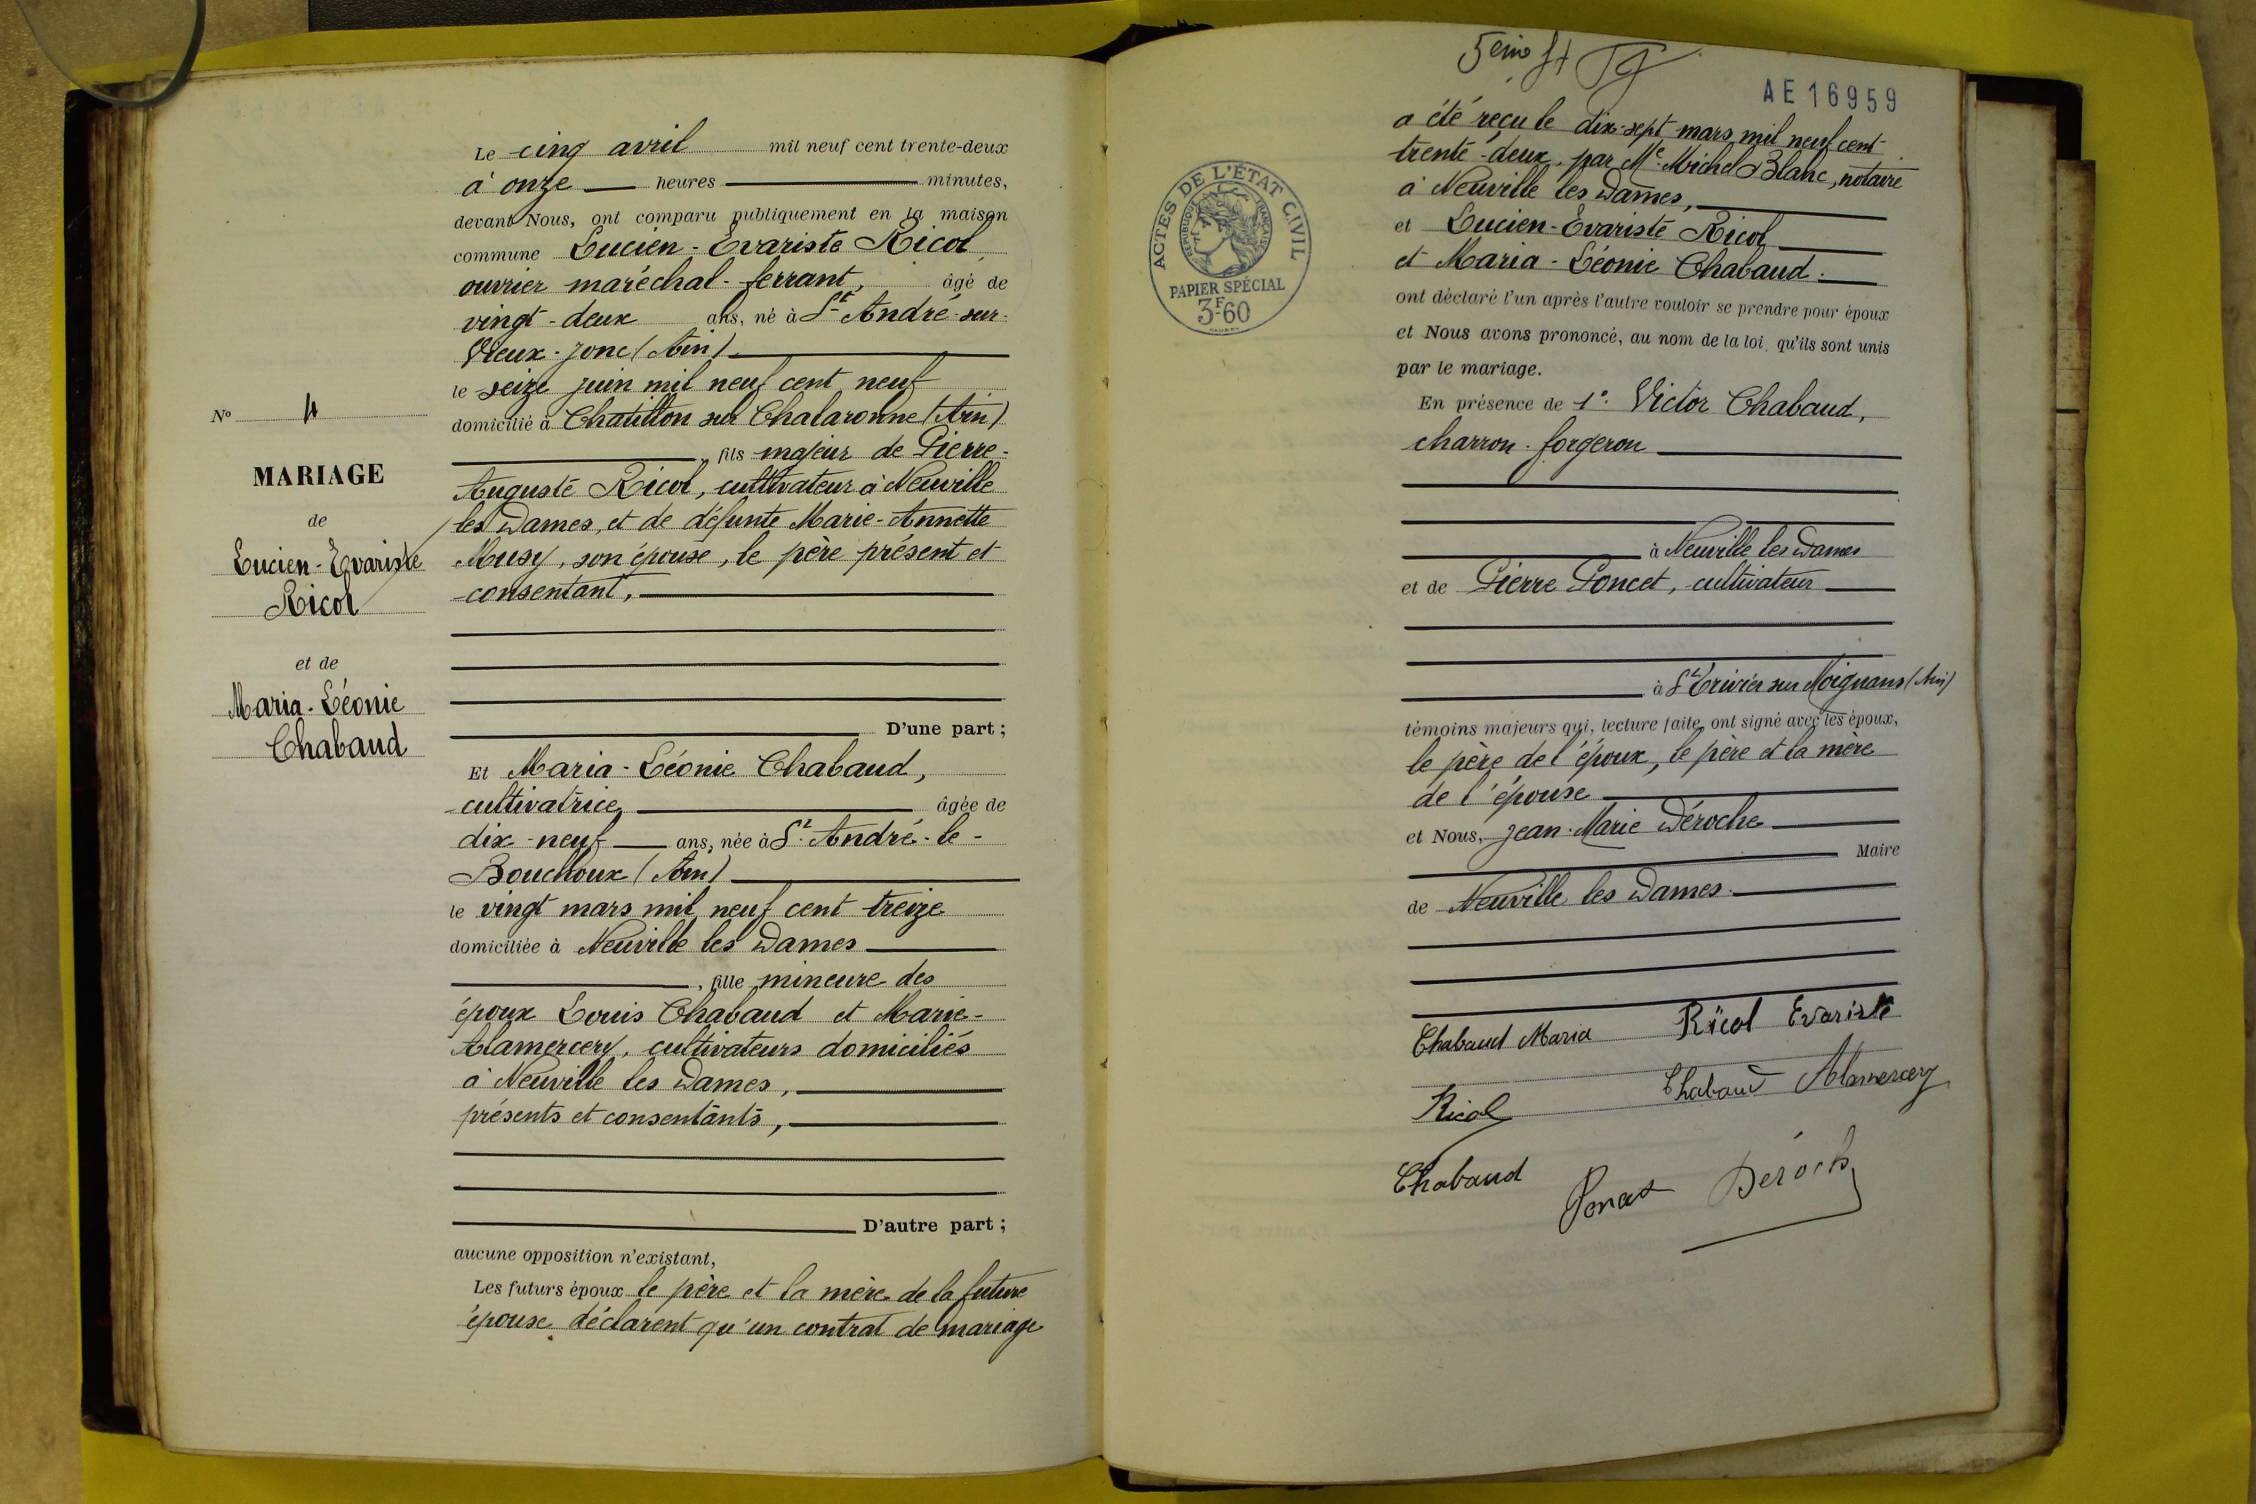 Le cinq avril mil neuf cent trente-deux
à onze heures minutes,
devant Nous, ont comparu publiquement en la maison
commune Lucien-Evariste Ricol,
ouvrier maréchal-ferrant, âgé de
vingt-deux ans, né à St André-sur-
Vieux-Jonc (Ain)
le seize juin mil neuf cent neuf
domicilié à Chatillon sur Chalaronne (Ain)
, fils majeur de Pierre-
Auguste Ricol, cultivateur à Neuville
les Dames, et de défunte Marie-Annette
Musy, son épouse, le père présent et
consentant,
D'une part ;
Et Maria-Léonie Chabaud,
cultivatrice, âgée de
dix-neuf ans, née à St André-le-
Bouchoux (Ain)
le vingt mars mil neuf cent treize
domiciliée à Neuville les Dames
, fille mineure des
époux Louis Chabaud et Marie-
Alamercery, cultivateurs domiciliés
à Neuville les Dames,
présents et consentants,
D'autre part ;
aucune opposition n'existant,
Les futurs époux le père et la mère de la future
épouse déclarent qu'un contrat de mariage
No 4
MARIAGE
de
Lucien-Evariste
Ricol
et de
Maria-Léonie
Chabaud
AE 16959
ACTES DE L'ÉTAT CIVIL
RÉPUBLIQUE FRANÇAISE
PAPIER SPÉCIAL
3F60
a été reçu le dix-sept mars mil neuf cent
trente-deux, par Me Michel Blanc, notaire
à Neuville les Dames,
et Lucien-Evariste Ricol
et Maria-Léonie Chabaud.
ont déclaré l'un après l'autre vouloir se prendre pour époux
et Nous avons prononcé, au nom de la loi, qu'ils sont unis
par le mariage.
En présence de 1º. Victor Chabaud,
charron-forgeron
à Neuville les Dames
et de Pierre Poncet, cultivateur
à St Trivier sur Moignans (Ain)
témoins majeurs qui, lecture faite, ont signé avec les époux,
le père de l'époux, le père et la mère
de l'épouse
et Nous, Jean-Marie Déroche
Maire
de Neuville les Dames.
Chabaud Maria Ricol Evariste
Ricol Chabaud Alamercery
Chabaud